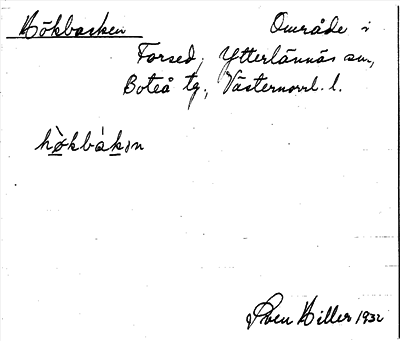 Hökbacken Område i
Forsed, Ytterlännäs sn,
Boteå tg., Västernorrl. l.
hø̀kbàkən
Sven Hiller 1932